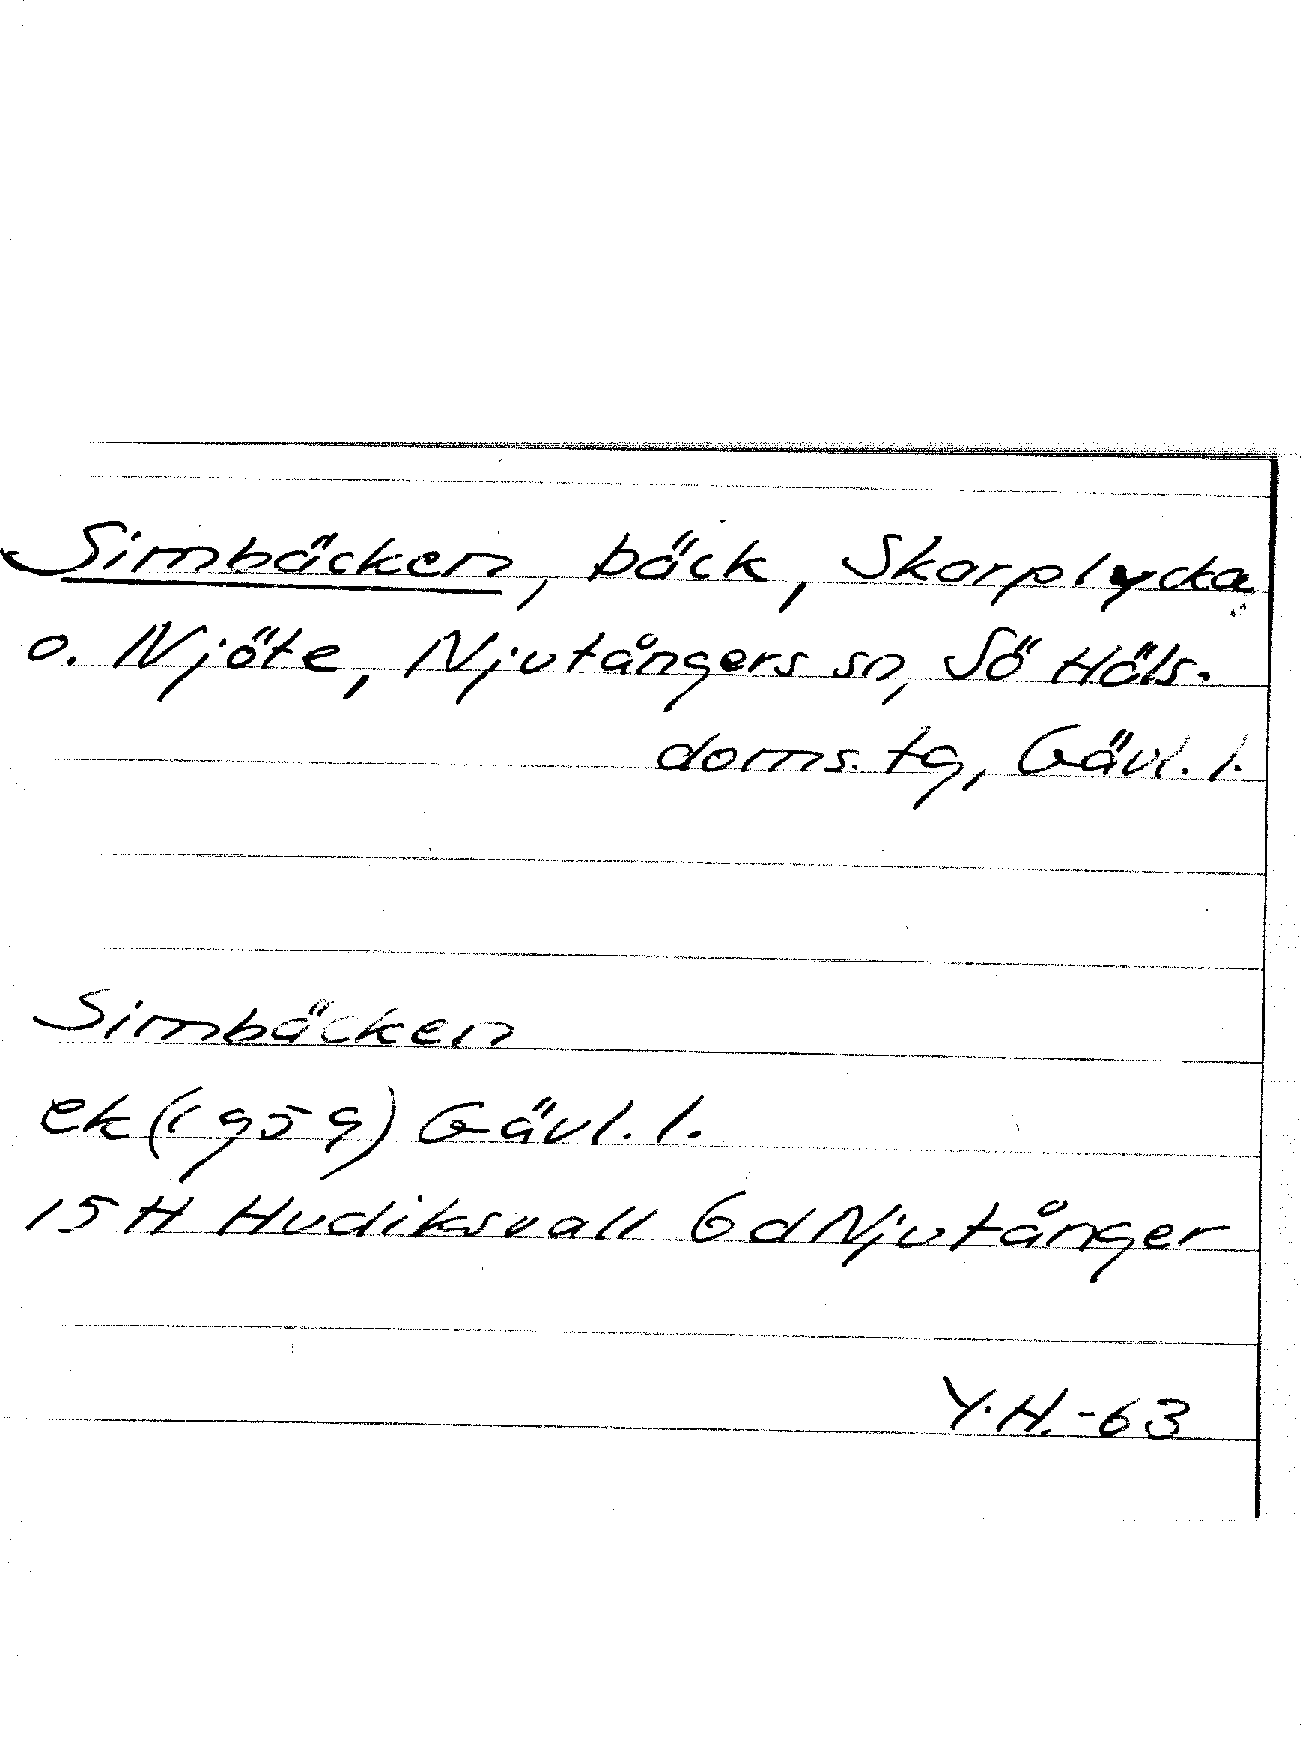 Simbäcken, bäck, Skarplycka
o. Njöte, Njutångers sn, Sö Häls.
doms. tg, Gävl. l.
Simbäcken
ek (1959) Gävl. l.
15 H Hudiksvall 6 d Njutånger
Y.H.-63